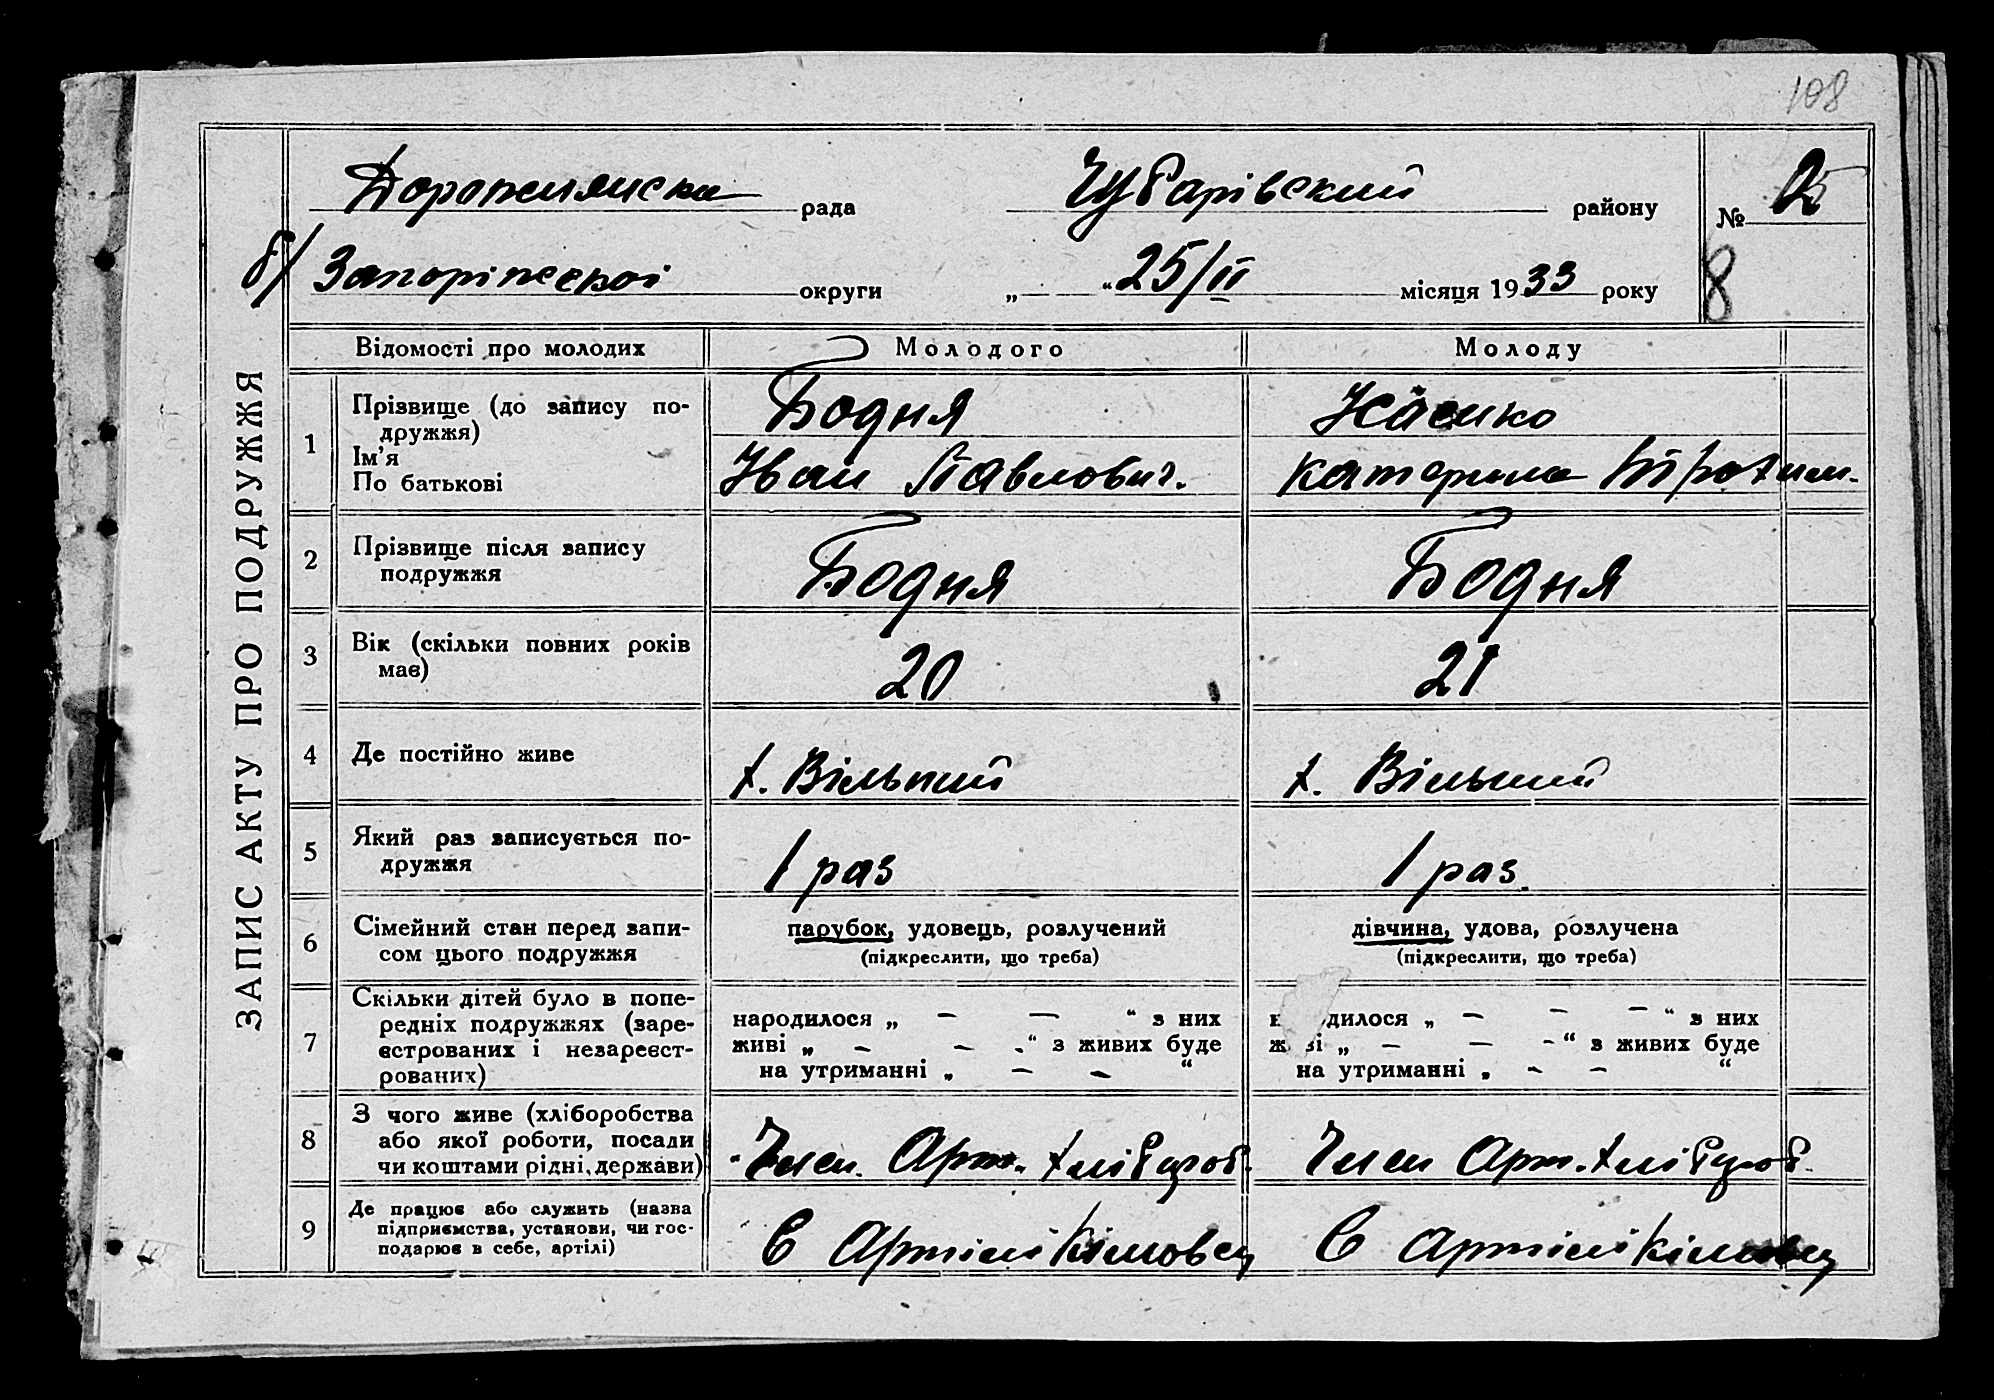 108
Дорожнянска рада Чубарівский району № 2
б/ Запоріжскоі округи „ “ 25/II місяця 1933 року 8
ЗАПИС АКТУ ПРО ПОДРУЖЖЯ
Відомості про молодих Молодого Молоду
1 Прізвище (до запису по-
дружжя)
Ім’я
По батькові
Бодня
Іван Павлович.
Катерина Трохим.
2 Прізвище після запису
подружжя
Бодня Бодня
3 Вік (скільки повних років
має)
20 21
4 Де постійно живе х. Вільний х. Вільний
5 Який раз записується по-
дружжя
1 раз 1 раз.
6 Сімейний стан перед запи-
сом цього подружжя
парубок, удовець, розлучений
(підкреслити, що треба)
дівчина, удова, розлучена
(підкреслити, що треба)
7 Скільки дітей було в попе-
редніх подружжях (заре-
єстрованих і незареєст-
рованих)
народилося „ — — “ з них
живі „ — — “ з живих буде
на утриманні „ — — “
н дилося „ — — — “ з них
ж ві „ — — — “ з живих буде
на утриманні „ — — “
8 З чого живе (хліборобства
або якої роботи, посади
чи коштами рідні, держави)
Член Арт. хлібороб. Член Арт. хлібороб.
9 Де працює або служить (назва
підприємства, установи, чи гос-
подарює в себе, артілі)
В Артілі Кімовец В Артілі Кімовец